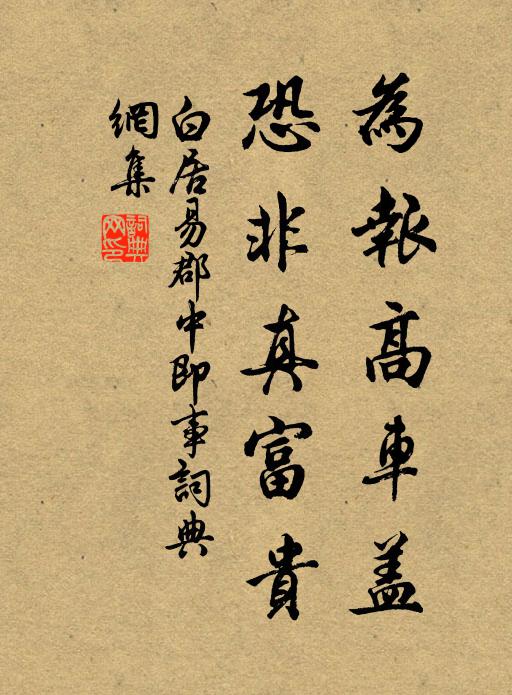 為報高車蓋
恐非真富貴
白居易郡中即事詞典
網集
詞典
网印